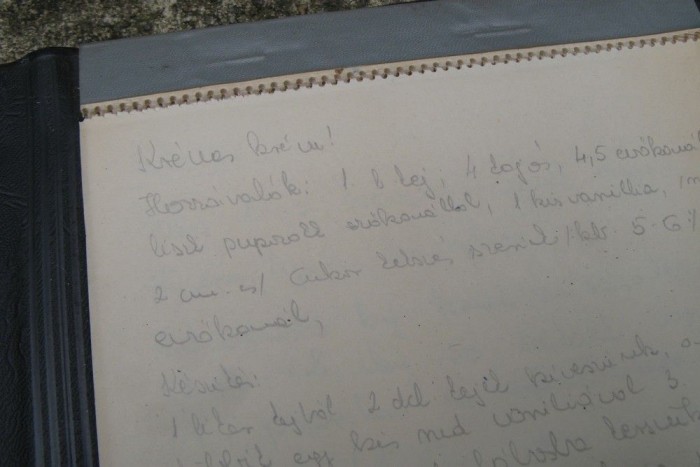 Krémes krém!
Hozzávalók: 1 l tej, 4 tojás, 4,5 evőkanál
liszt púpozott evőkanállal, 1 kis vanillia,
2 cm-es/ Cukor tetszés szerint /kb 5-6/
evőkanál,
Készítés:
1 liter tejből 2 del tejet kiveszünk, a
egy kis rúd vaníliával